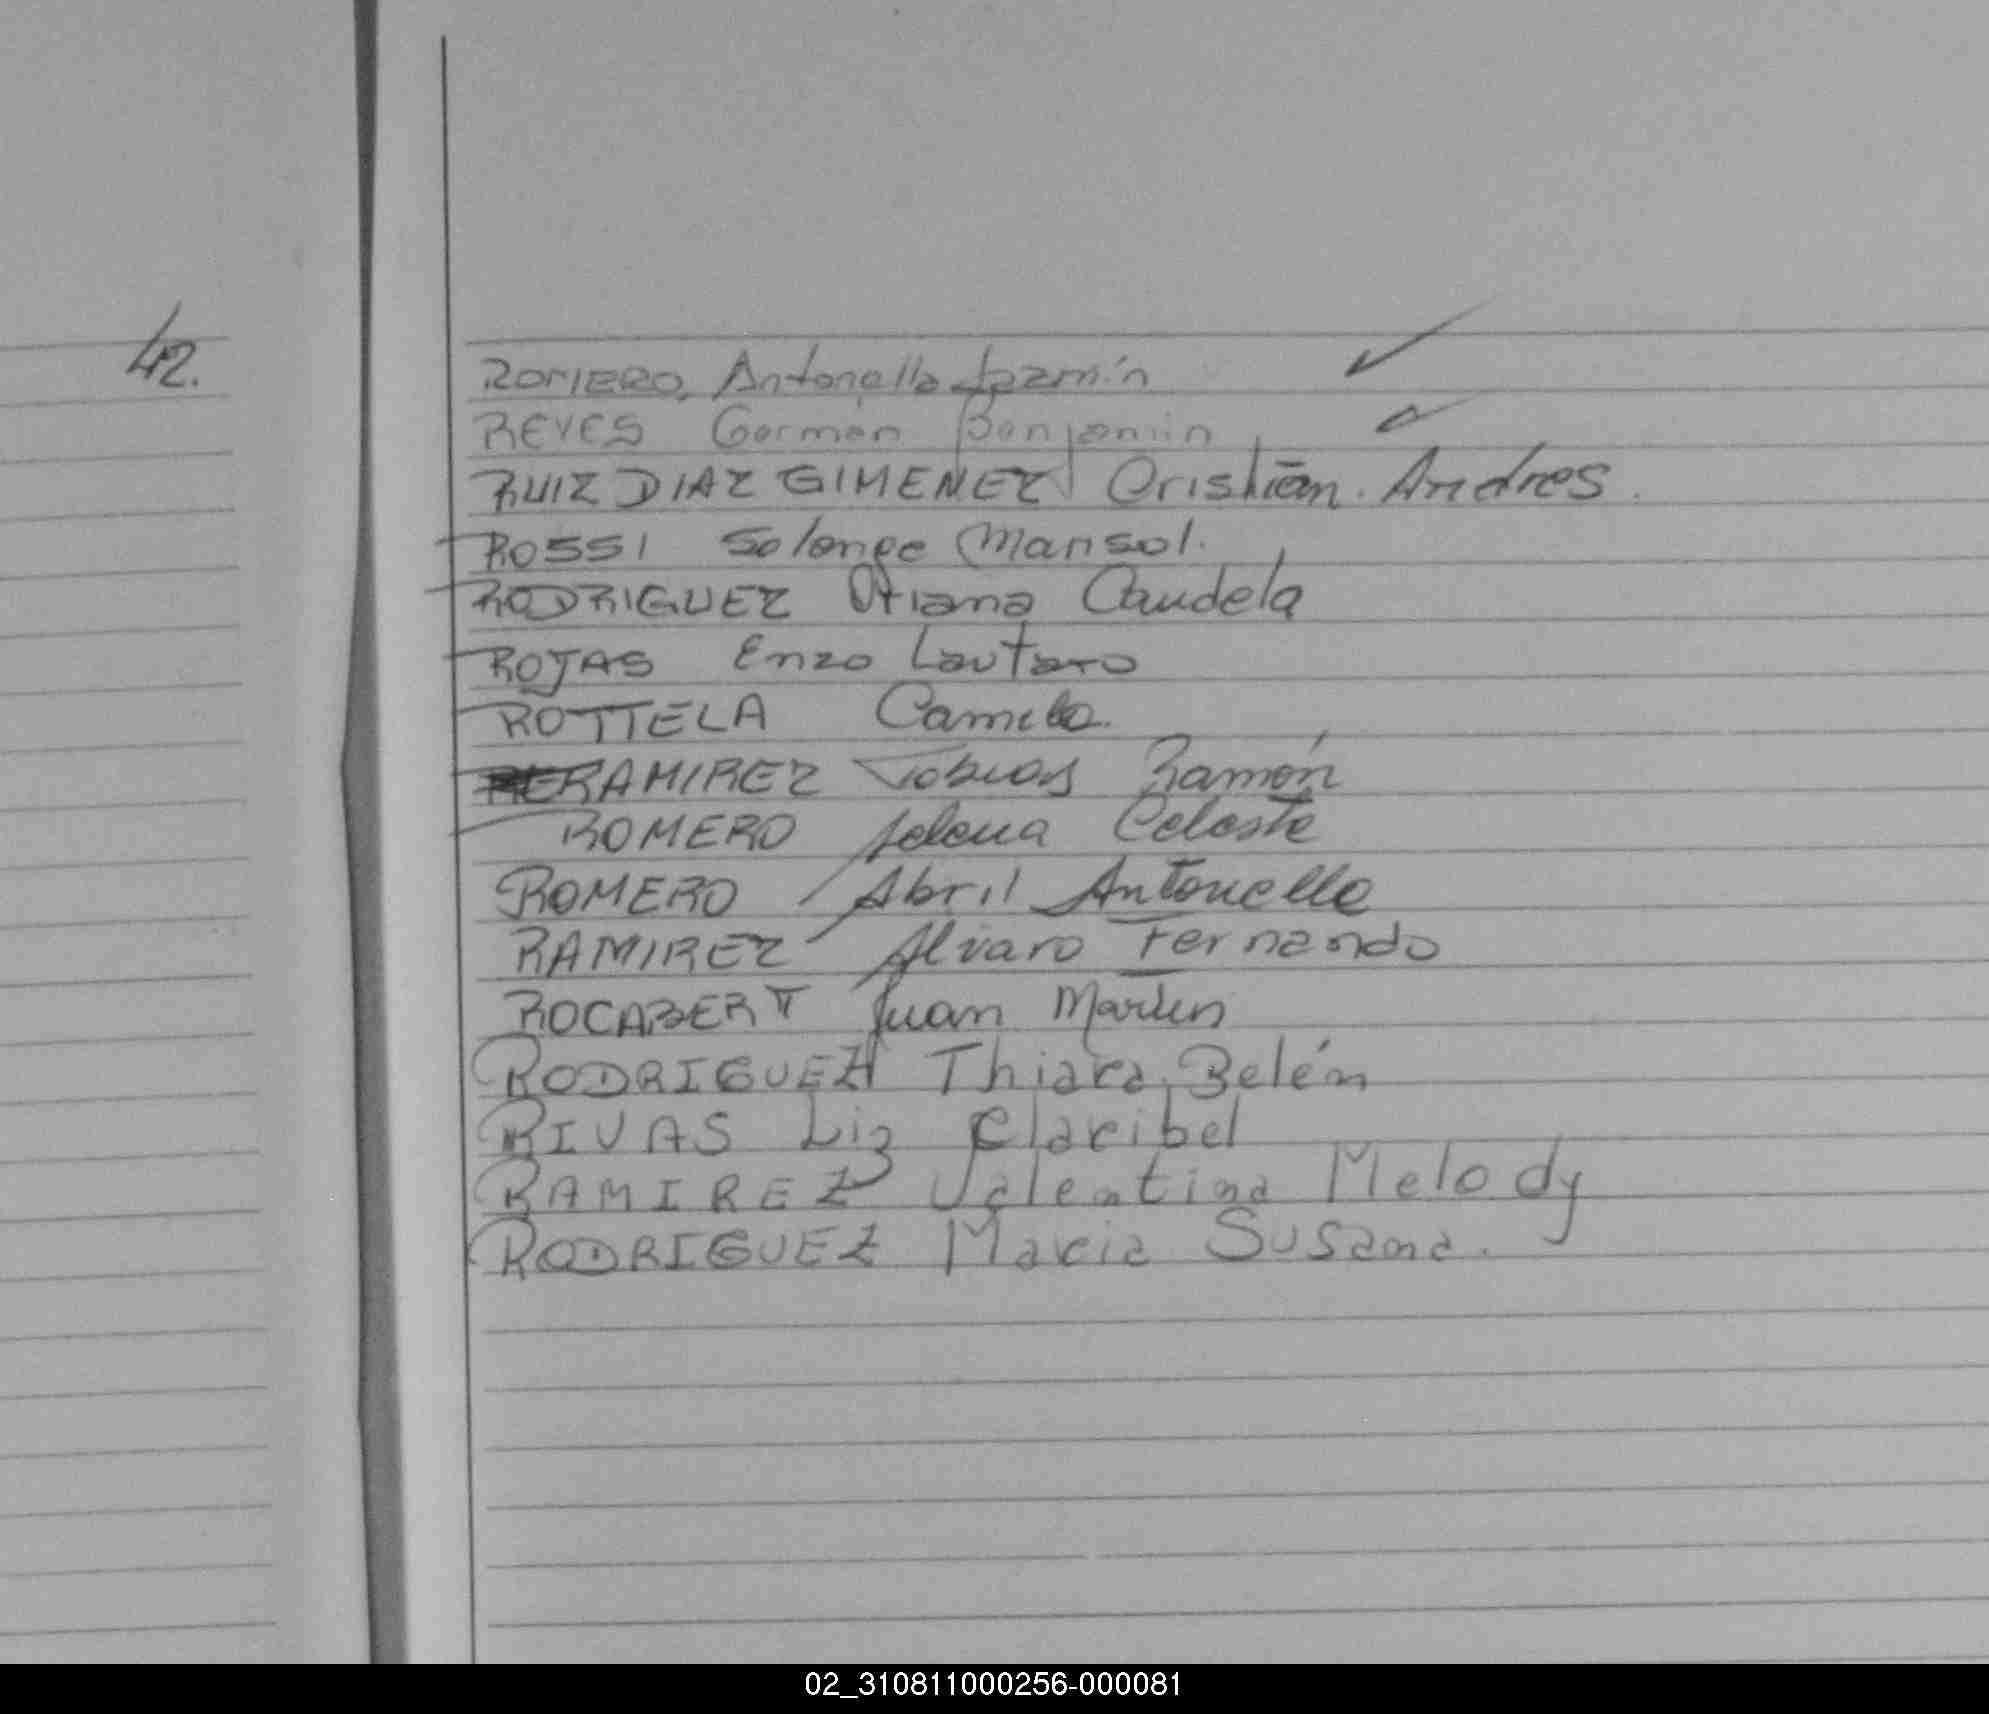 42.
ROMERO, Antonella Jazmín
REYES German Benjamin
RUIZ DIAZ GIMENEZ Cristian. Andres.
ROSSI Solange Marisol.
RODRIGUEZ Oriana Candela
ROJAS Enzo Lautaro
ROTTELA Camila.
RAMIREZ Tobias Ramón
ROMERO Selena Celeste
ROMERO Abril Antonella
RAMIREZ Alvaro Fernando
ROCABERT Juan Martin
RODRIGUEZ Thiara Belén
RIVAS Liz Claribel
RAMIREZ Valentina Melody
RODRIGUEZ Maria Susana.
02_310811000256-000081